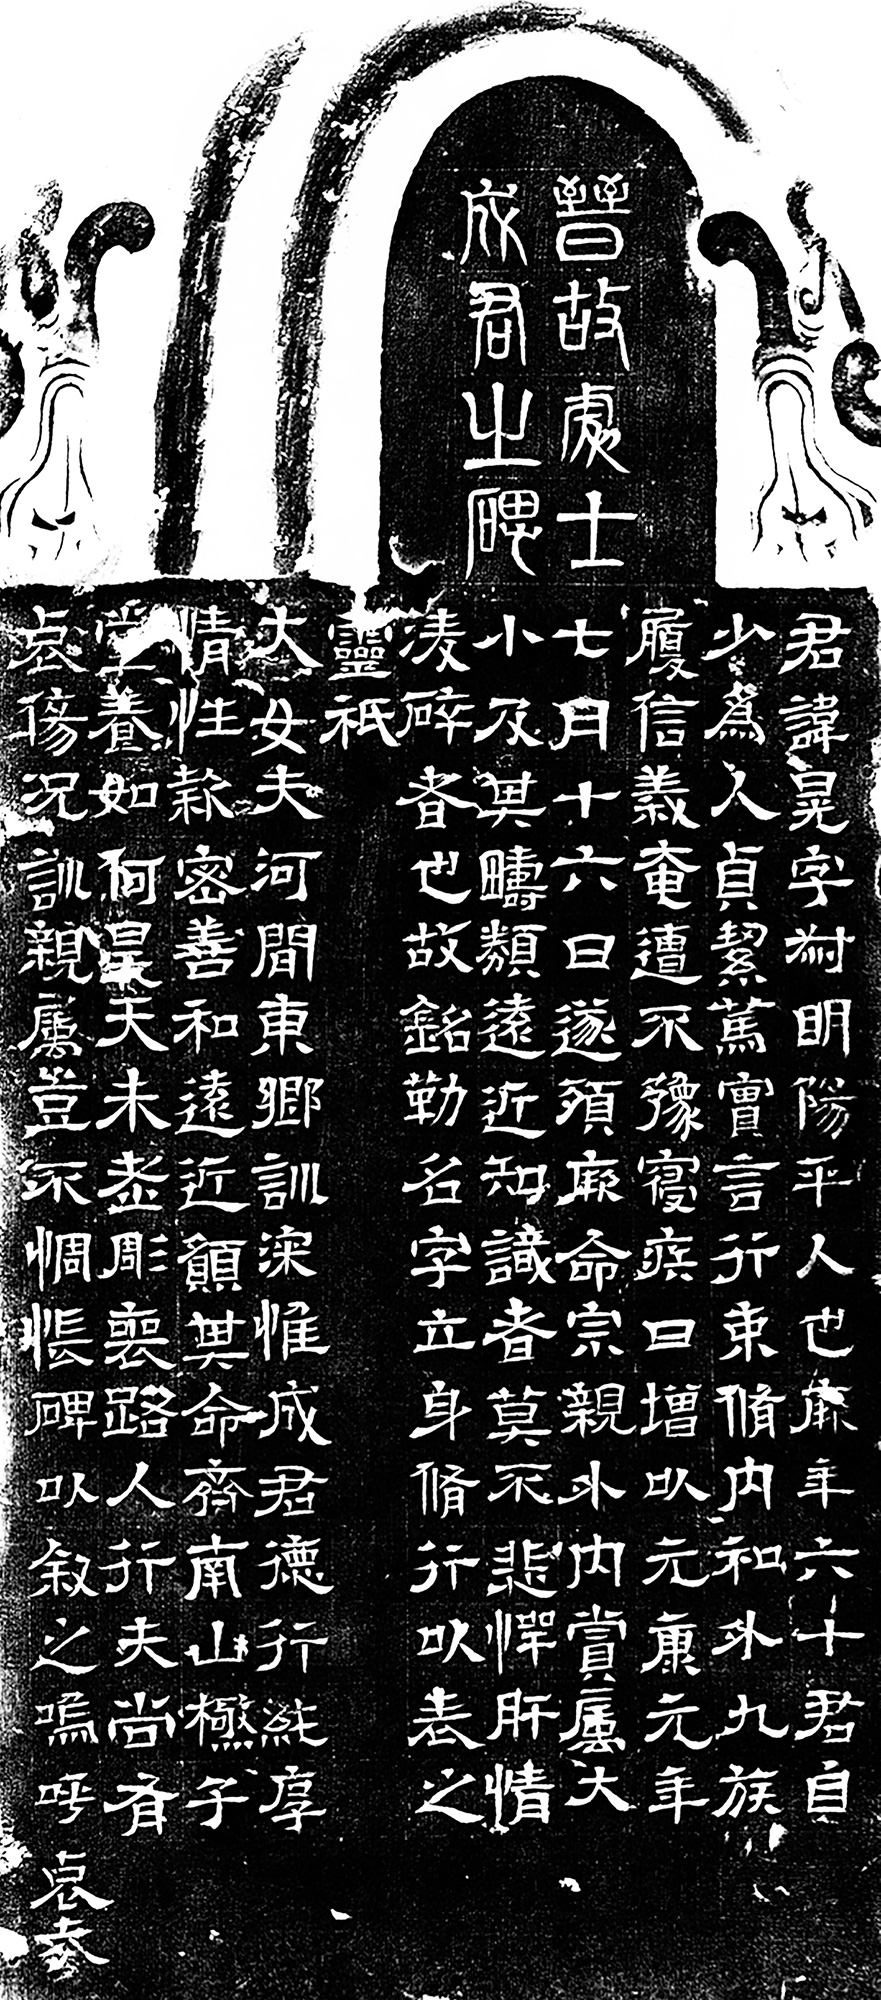 晉故處士
成君之碑
君諱晃字叔明陽平人也年六十君自
少為人貞絜篤實言行束脩内和外九族
履信義奄遭不豫寑疾日增以元康元年
七月十六日遂殞厥命宗親外内賞屬大
小及其疇類遠近知識者莫不悲憚肝情
凌碎者也故銘勒名字立身脩行以表之
靈祇
大女夫河間東鄉訓深惟成君德行純厚
情性款密善和遠近願其命齊南山極子
堂養如何昊天未老彫喪路人行夫尚有
哀傷況訓親屬豈不惆悵碑以叙之嗚呼哀哉